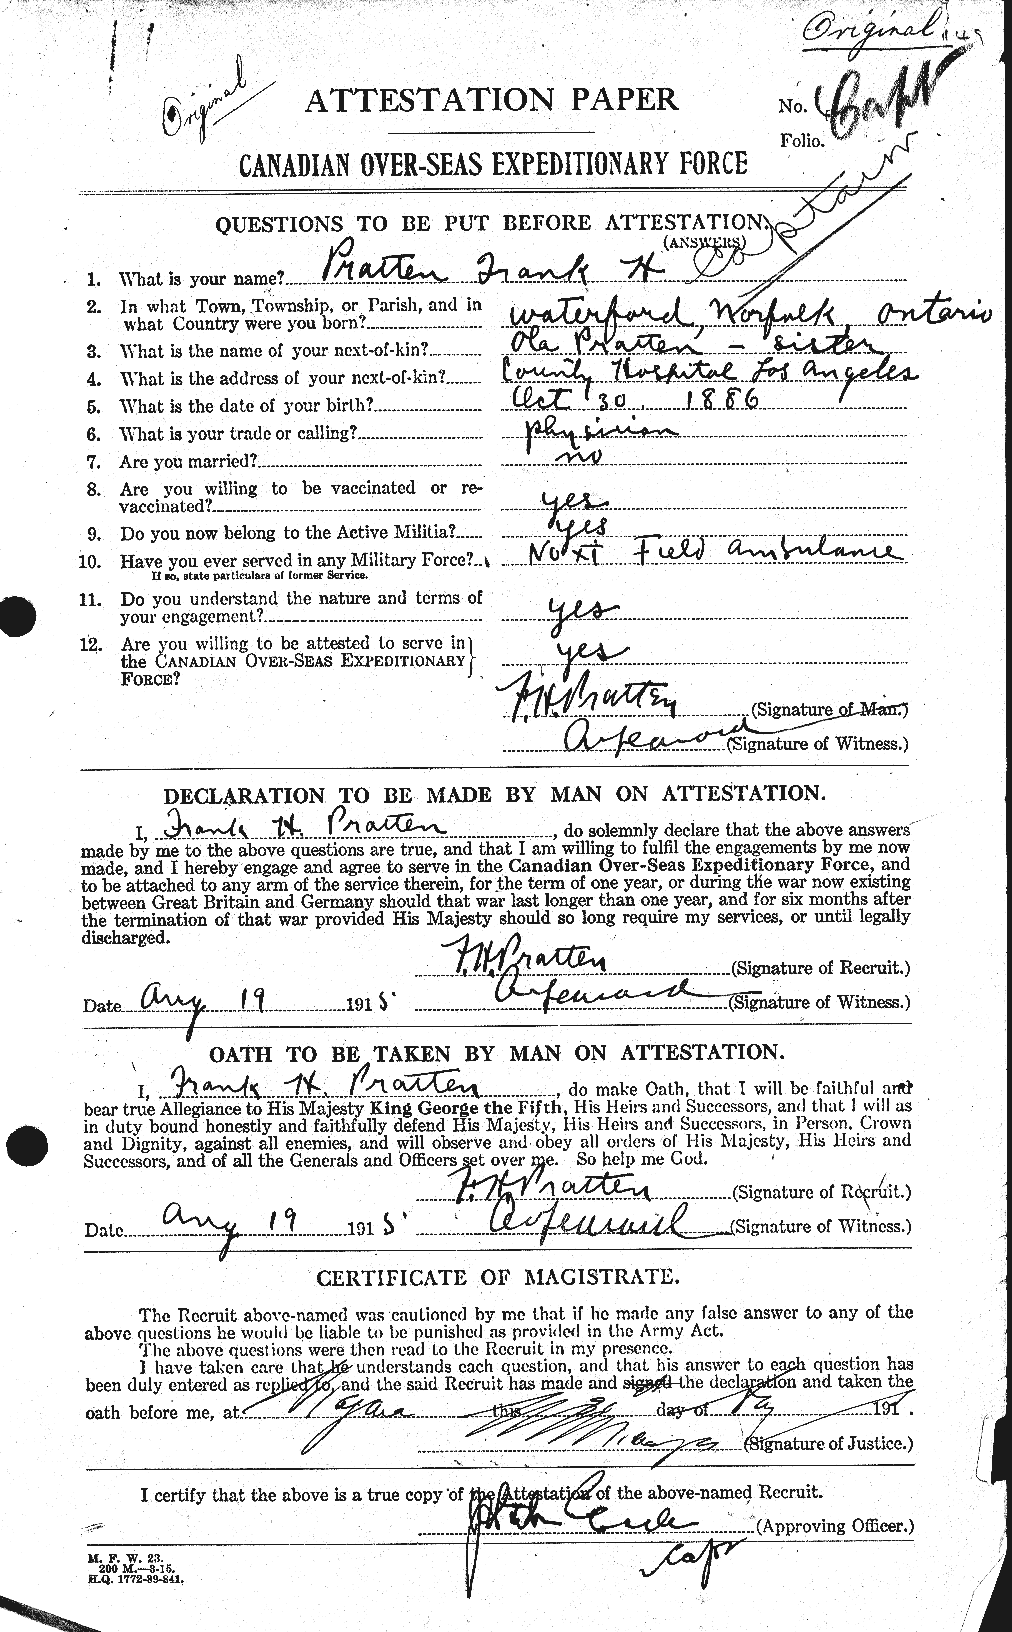 Original
Original
ATTESTATION PAPER
No.
Capt
Folio.
CANADIAN OVER-SEAS EXPEDITIONARY FORCE
Captain
QUESTIONS TO BE PUT BEFORE ATTESTATION.
(ANSWERS)
1. What is your name? Pratten Frank H
2. In what Town, Township, or Parish, and in
what Country were you born? Waterford, Norfolk, Ontario
3. What is the name of your next-of-kin? Ola Pratten - sister
4. What is the address of your next-of-kin? County Hospital Los Angeles
5. What is the date of your birth? Oct 30, 1886
6. What is your trade or calling? physician
7. Are you married? no
8. Are you willing to be vaccinated or re-
vaccinated? yes
9. Do you now belong to the Active Militia? yes
10. Have you ever served in any Military Force? No XI Field Ambulance
If so, state particulars of former Service.
11. Do you understand the nature and terms of
your engagement? yes
12. Are you willing to be attested to serve in
the CANADIAN OVER-SEAS EXPEDITIONARY yes
FORCE?
F.H. Pratten (Signature of Man.)
(Signature of Witness.)
DECLARATION TO BE MADE BY MAN ON ATTESTATION.
I, Frank H. Pratten, do solemnly declare that the above answers
made by me to the above questions are true, and that I am willing to fulfil the engagements by me now
made, and I hereby engage and agree to serve in the Canadian Over-Seas Expeditionary Force, and
to be attached to any arm of the service therein, for the term of one year, or during the war now existing
between Great Britain and Germany should that war last longer than one year, and for six months after
the termination of that war provided His Majesty should so long require my services, or until legally
discharged.
F.H. Pratten (Signature of Recruit.)
Date Aug 19 1915 (Signature of Witness.)
OATH TO BE TAKEN BY MAN ON ATTESTATION.
I, Frank H. Pratten, do make Oath, that I will be faithful and
bear true Allegiance to His Majesty King George the Fifth, His Heirs and Successors, and that I will as
in duty bound honestly and faithfully defend His Majesty, His Heirs and Successors, in Person, Crown
and Dignity, against all enemies, and will observe and obey all orders of His Majesty, His Heirs and
Successors, and of all the Generals and Officers set over me. So help me God.
F.H. Pratten (Signature of Recruit.)
Date Aug 19 1915 (Signature of Witness.)
CERTIFICATE OF MAGISTRATE.
The Recruit above-named was cautioned by me that if he made any false answer to any of the
above questions he would be liable to be punished as provided in the Army Act.
The above questions were then read to the Recruit in my presence.
I have taken care that he understands each question, and that his answer to each question has
been duly entered as replied to, and the said Recruit has made and signed the declaration and taken the
oath before me, at Niagara this day of 191 .
(Signature of Justice.)
I certify that the above is a true copy of the Attestation of the above-named Recruit.
(Approving Officer.)
Capt
M. F. W. 23.
200 M.-3-15.
H.Q. 1772-39-841.